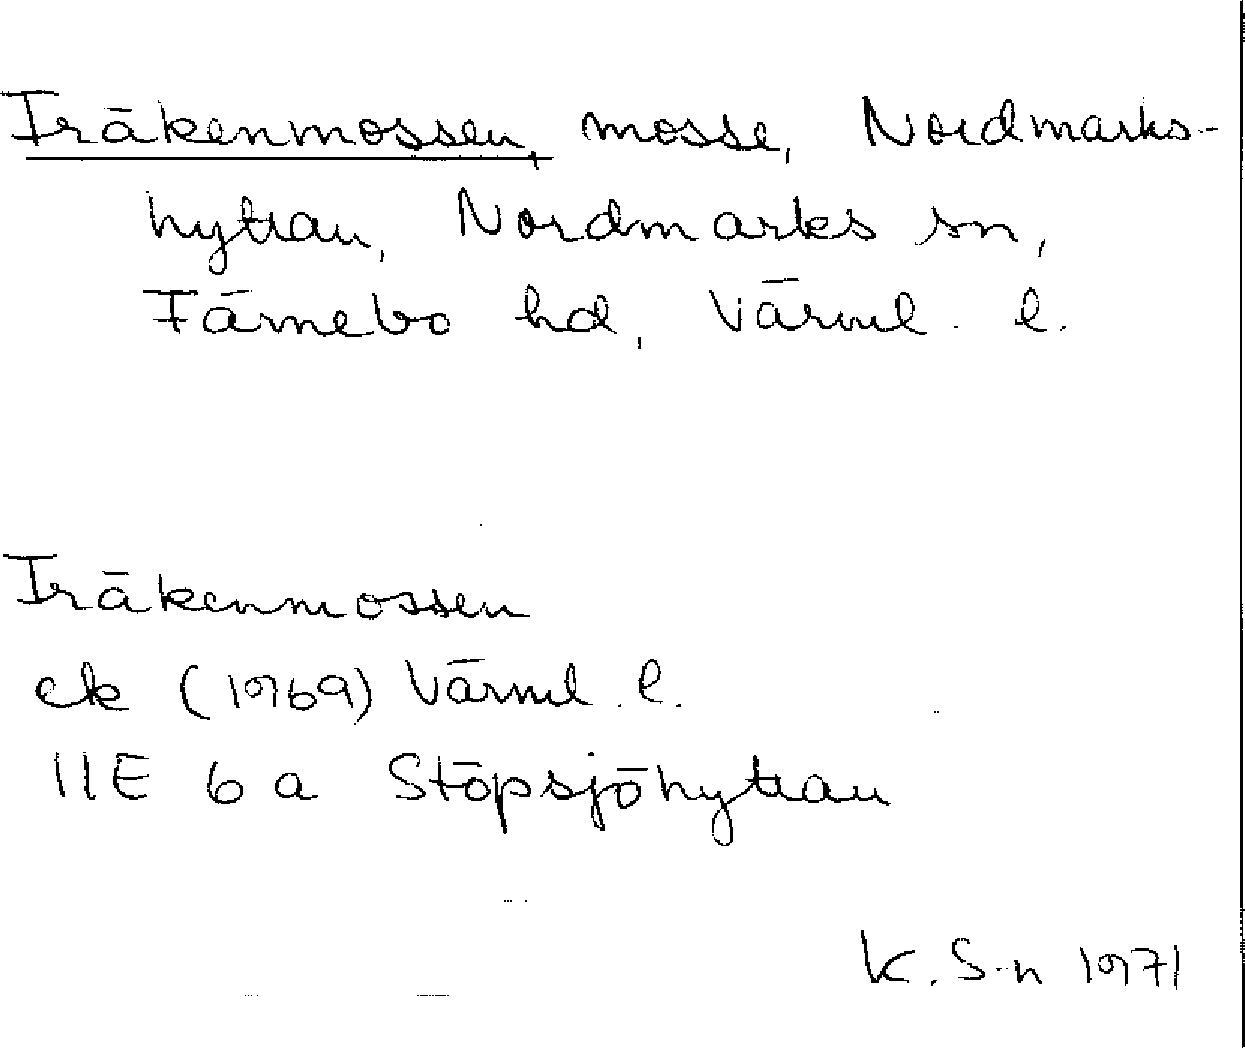 Träkenmossen, mosse, Nordmarks-
hyttan, Nordmarks sn,
Färnebo hd, Värml. l.
Träkenmossen
ek (1969) Värml. l.
11E 6a Stöpsjöhyttan
K. S-n 1971